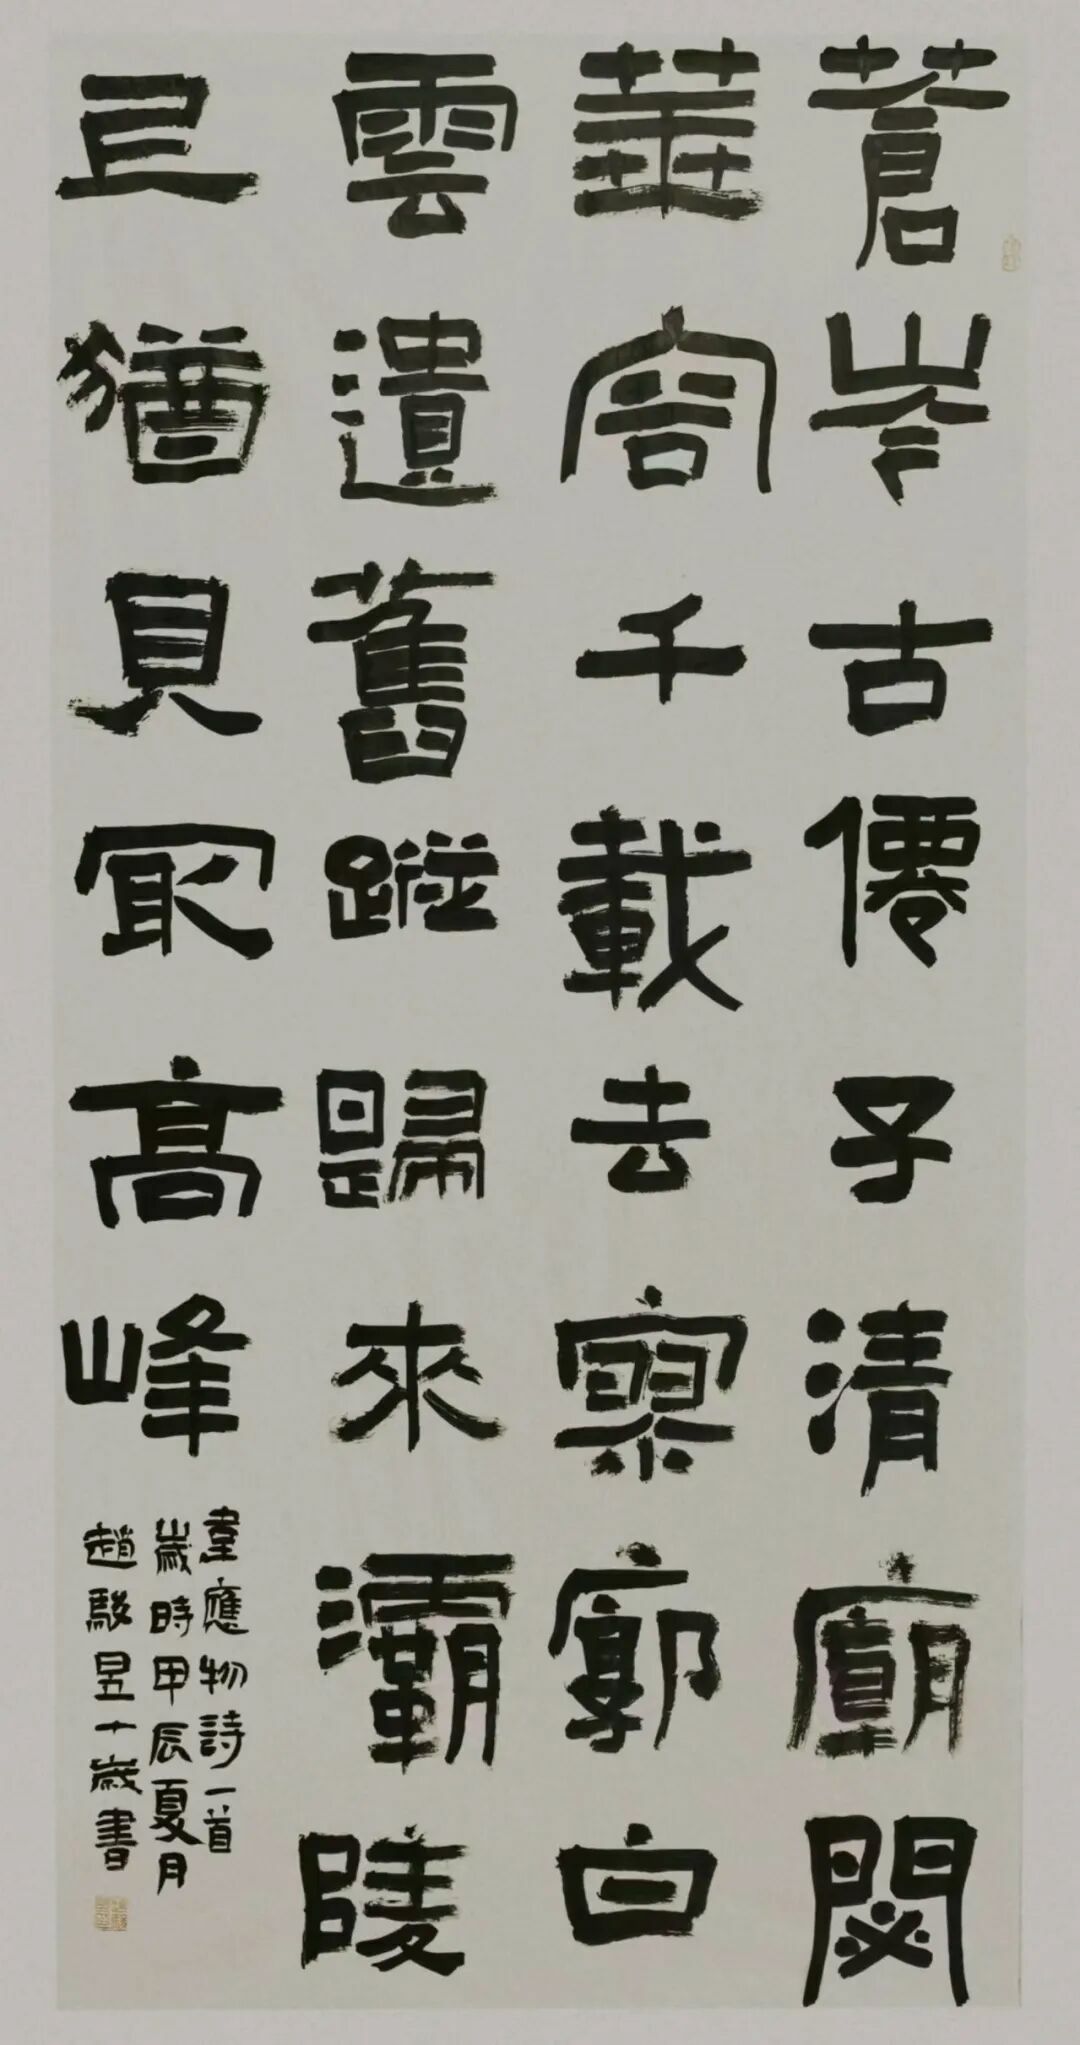 蒼岑古僊子清廟閟
華容千載去寥廓白
雲遺舊蹤歸來灞陵
上猶見冣髙峰
韋應物詩一首
歲時甲辰夏月
趙駿昱十歲書